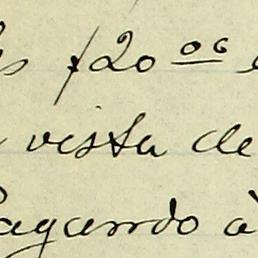 £20 00
vista de
Pagando à